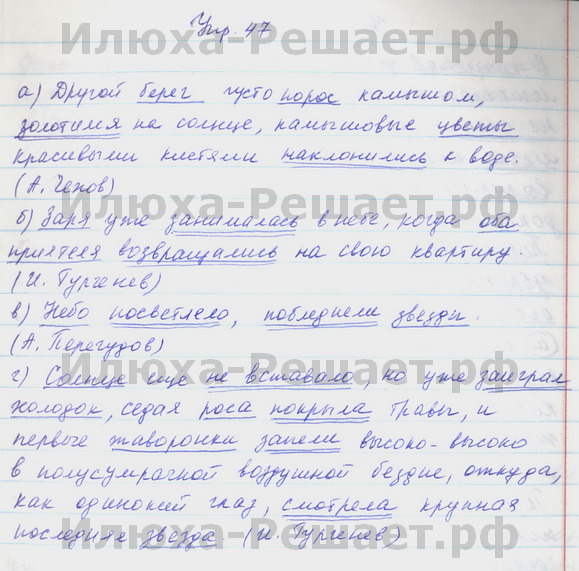 Упр. 47
Илюха-Решает.рф
а) Другой берег густо порос камышом,
золотился на солнце, камышовые цветы
красивыми кистями наклонились к воде.
(А. Чехов)
Илюха-Решает.рф
б) Заря уже занималась в небе, когда оба
приятеля возвращались на свою квартиру.
(И. Тургенев)
в) Небо посветлело, побледнели звезды.
(А. Перегудов)
Илюха-Решает.рф
г) Солнце еще не вставало, но уже заиграл
холодок, седая роса покрыла травы, и
первые жаворонки запели высоко-высоко
в полусумрачной воздушной бездне, откуда,
как одинокий глаз, смотрела крупная
последняя звезда (И. Тургенев)
Илюха-Решает.рф